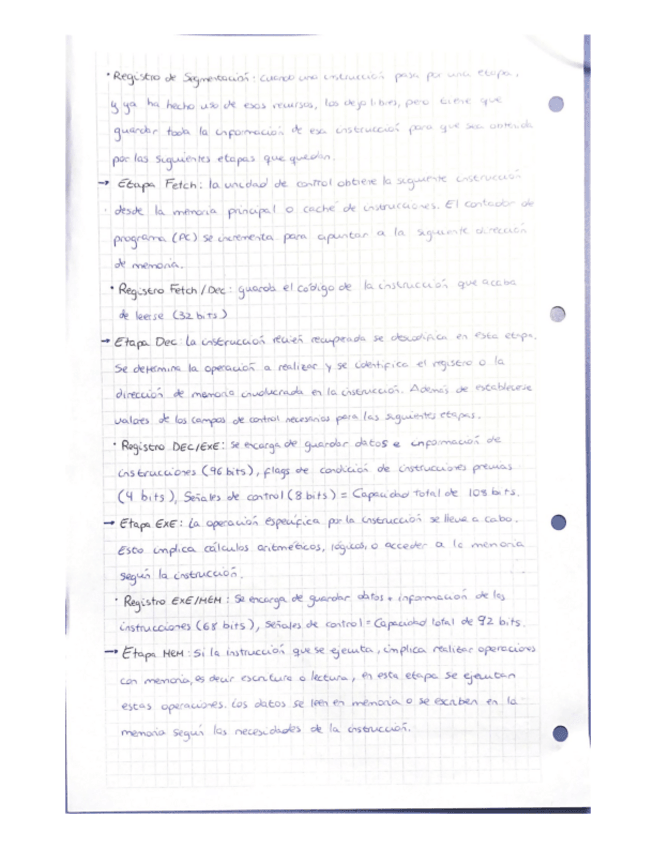 · Registro de Segmentación: cuando una instrucción pasa por una etapa,
y ya ha hecho uso de esos recursos, los deja libres, pero tiene que
guardar toda la información de esa instrucción para que sea
por las siguientes etapas que quedan.
→ Etapa Fetch: la unidad de control obtiene la siguiente instrucción
desde la memoria principal o caché de instrucciones. El contador de
programa (PC) se incrementa para apuntar a la siguiente dirección
de memoria.
· Registro Fetch/Dec: guarda el código de la instrucción que acaba
de leerse (32 bits)
→ Etapa Dec: la instrucción recién recuperada se decodifica en esta etapa.
Se determina la operación a realizar y se identifica el registro o la
dirección de memoria involucrada en la instrucción. Además de establecerse
valores de los campos de control necesarios para las siguientes etapas.
· Registro DEC/EXE: se encarga de guardar datos e información de
instrucciones (96 bits), flags de condición de instrucciones previas
(4 bits), Señales de control (8 bits) = Capacidad Total de 108 bits.
→ Etapa EXE: La operación específica por la instrucción se lleva a cabo.
Esto implica cálculos aritméticos, lógicos, o acceder a la memoria
según la instrucción.
· Registro EXE/MEM: Se encarga de guardar datos + información de las
instrucciones (68 bits), Señales de control = Capacidad total de 92 bits.
→ Etapa MEM: Si la instrucción que se ejecuta, implica realizar operaciones
con memoria, es decir escritura o lectura, en esta etapa se ejecutan
estas operaciones. Los datos se leen en memoria o se escriben en la
memoria según las necesidades de la instrucción.